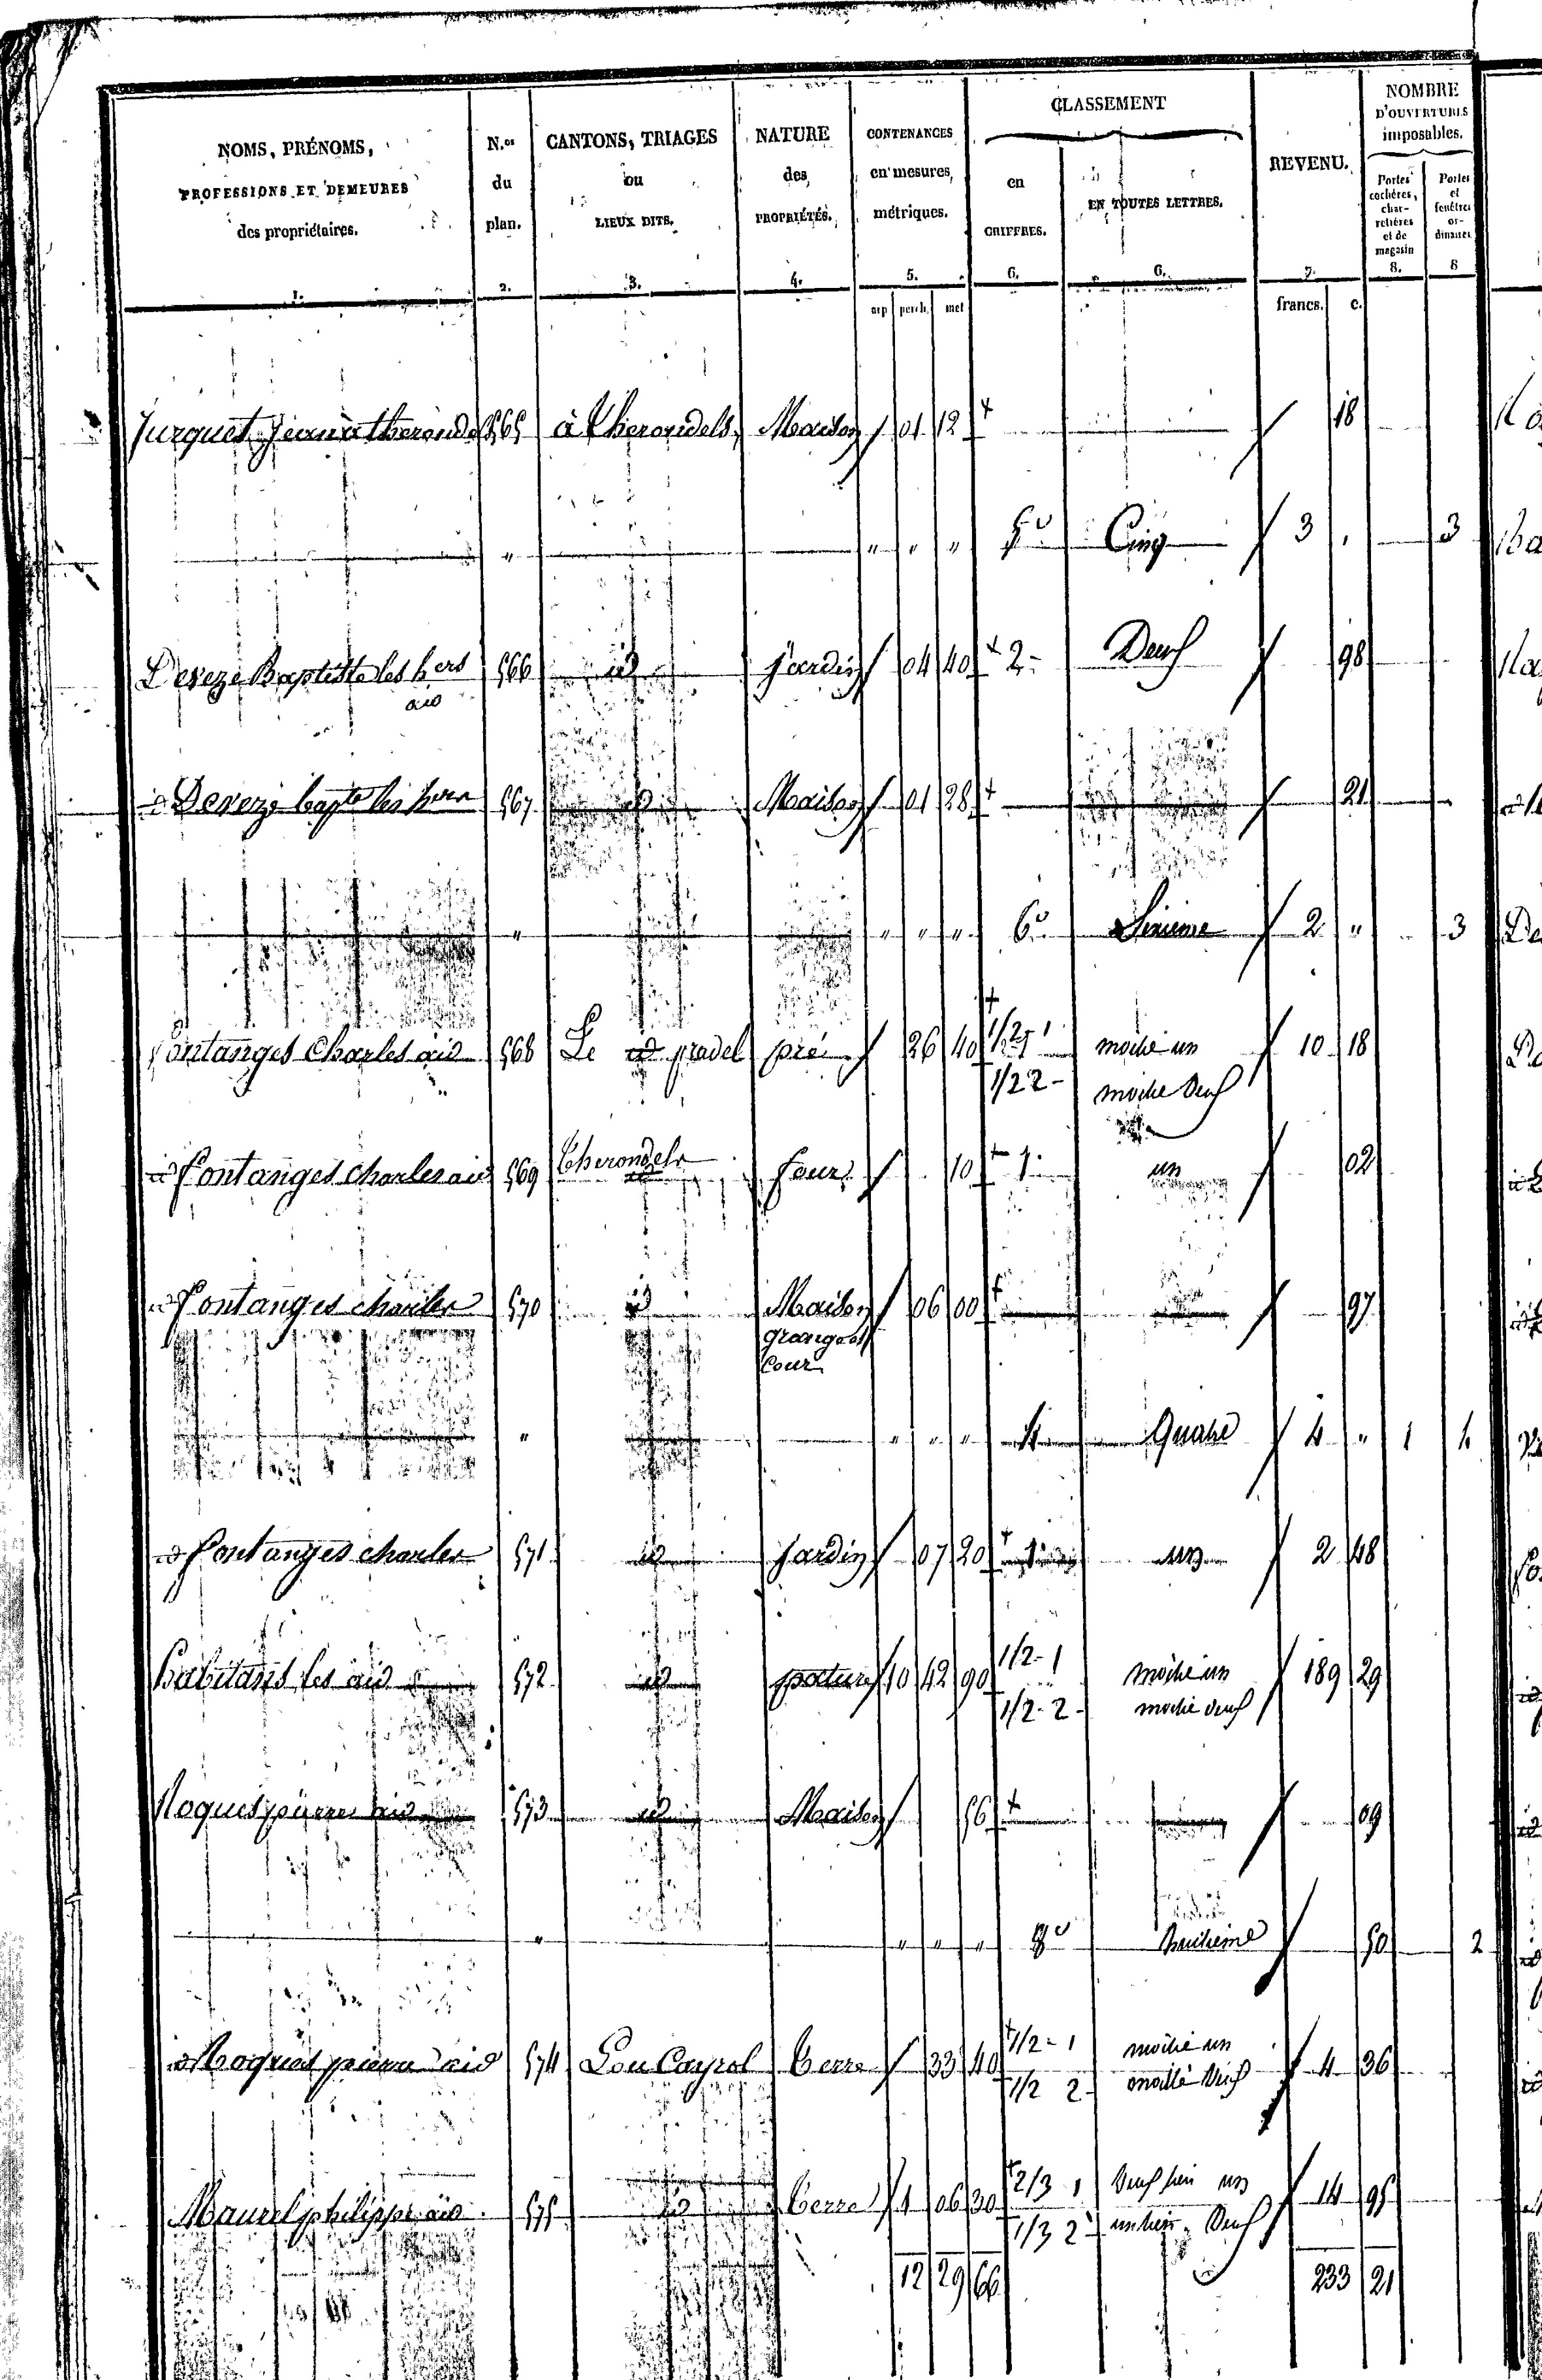 NOMS, PRÉNOMS, PROFESSIONS ET DEMEURES des propriétaires. 1.
N.os du plan. 2.
CANTONS, TRIAGES ou LIEUX DITS. 3.
NATURE des PROPRIÉTÉS. 4.
CONTENANCES en mesures métriques. 5.
CLASSEMENT
en CHIFFRES. 6.
EN TOUTES LETTRES. 6.
REVENU. 7.
NOMBRE D'OUVERTURES imposables.
Portes cochères, charretières et de magasin 8.
Portes et fenêtres ordinaires 8
arp perch. met francs. c.
Jurquet Jean à therondels 565 à Therondels Maison 01 12 + 18
" " " " 5e Cinq 3 " 3
Devezé Baptiste les hers 566 id Jardin 04 40 + 2 Deux 98
aid
id Devezé bapte les hers 567 id Maison 01 28 + 21
" " " " 6e Sixieme 2 " 3
fontanges Charles aid 568 Le pradel pré 26 40 + 1/2 1 moitié un 10 18
1/2 2 moitié Deux
id fontanges charles aid 569 Therondels four 10 + 1 un 02
id fontanges charles 570 id Maison 06 00 + 97
grange et
Cour
" " " " 4 Quatre 4 " 1 4
id fontanges charles 571 id Jardin 07 20 + 1 un 2 48
habitans les aid 572 id pature 10 42 90 1/2 1 moitié un 189 29
1/2 2 moitié deux
Roques pierre aid 573 id Maison 56 + 09
" " " " 8e huitieme 50 2
id Roques pierre aid 574 Lou Cayrol terre 33 40 + 1/2 1 moitié un 4 36
1/2 2 moitié Deux
Maurel philippe aid 575 id terre 1 06 30 + 2/3 1 Deux tiers un 14 95
1/3 2 un tiers Deux
12 29 66 233 21